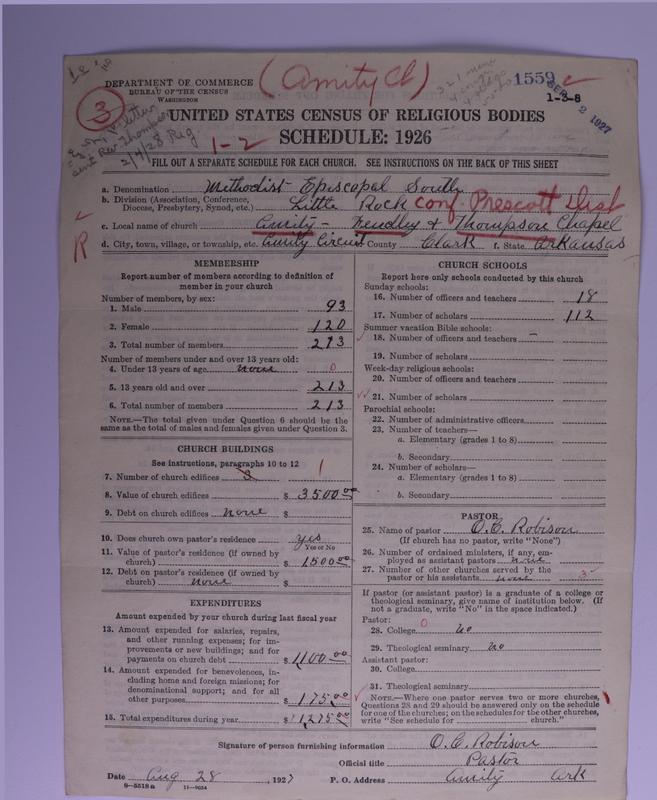 DEPARTMENT OF COMMERCE
BUREAU OF THE CENSUS
WASHINGTON
(Amity Ch)
1559
1-3-8
SEP 2 1927
3
UNITED STATES CENSUS OF RELIGIOUS BODIES
SCHEDULE: 1926
2/4/28 Rig
1-2
FILL OUT A SEPARATE SCHEDULE FOR EACH CHURCH. SEE INSTRUCTIONS ON THE BACK OF THIS SHEET
a. Denomination Methodist Episcopal South
b. Division (Association, Conference, Diocese, Presbytery, Synod, etc.) Little Rock Conf. Prescott Dist
c. Local name of church Amity - Fendley & Thompson Chapel
R
d. City, town, village, or township, etc. Amity Circuit County Clark f. State Arkansas
MEMBERSHIP
Report number of members according to definition of
member in your church
Number of members, by sex:
1. Male 93
2. Female 120
3. Total number of members 213
Number of members under and over 13 years old:
4. Under 13 years of age none 0
5. 13 years old and over 213
6. Total number of members 213
NOTE.—The total given under Question 6 should be the
same as the total of males and females given under Question 3.
CHURCH BUILDINGS
See instructions, paragraphs 10 to 12
7. Number of church edifices 3 1
8. Value of church edifices $ 3500 00
9. Debt on church edifices none $
10. Does church own pastor's residence yes
Yes or No
11. Value of pastor's residence (if owned by
church) $ 1500 00
12. Debt on pastor's residence (if owned by
church) none $
EXPENDITURES
Amount expended by your church during last fiscal year
13. Amount expended for salaries, repairs,
and other running expenses; for im-
provements or new buildings; and for
payments on church debt $ 1100 00
14. Amount expended for benevolences, in-
cluding home and foreign missions; for
denominational support; and for all
other purposes $ 175 00
15. Total expenditures during year $ 1275 00
CHURCH SCHOOLS
Report here only schools conducted by this church
Sunday schools:
16. Number of officers and teachers 18
17. Number of scholars 112
Summer vacation Bible schools:
18. Number of officers and teachers –
19. Number of scholars
Week-day religious schools:
20. Number of officers and teachers
21. Number of scholars
Parochial schools:
22. Number of administrative officers
23. Number of teachers—
a. Elementary (grades 1 to 8)
b. Secondary
24. Number of scholars—
a. Elementary (grades 1 to 8)
b. Secondary
PASTOR
25. Name of pastor O. C. Robison
(If church has no pastor, write "None")
26. Number of ordained ministers, if any, em-
ployed as assistant pastors none
27. Number of other churches served by the
pastor or his assistants none 3
If pastor (or assistant pastor) is a graduate of a college or
theological seminary, give name of institution below. (If
not a graduate, write "No" in the space indicated.)
Pastor: 0
28. College no
29. Theological seminary no
Assistant pastor:
30. College
31. Theological seminary
NOTE.—Where one pastor serves two or more churches,
Questions 28 and 29 should be answered only on the schedule
for one of the churches; on the schedules for the other churches,
write "See schedule for church."
Signature of person furnishing information O. C. Robison
Official title Pastor
Date Aug 28, 1927 P. O. Address Amity Ark
8-5518 a 11-9034